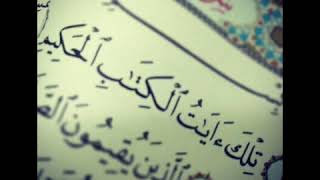 تِلْكَ ءَايَٰتُ ٱلْكِتَٰبِ ٱلْحَكِيمِ
ٱلَّذِينَ يُقِيمُونَ